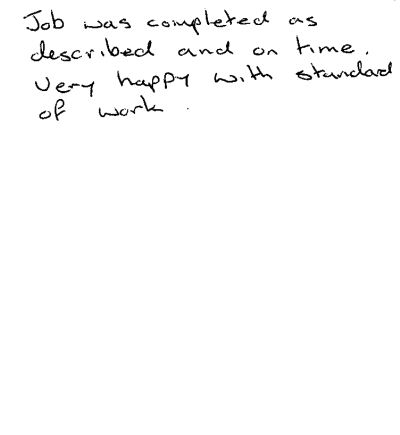 Job was completed as
described and on time.
Very happy with standard
of work.